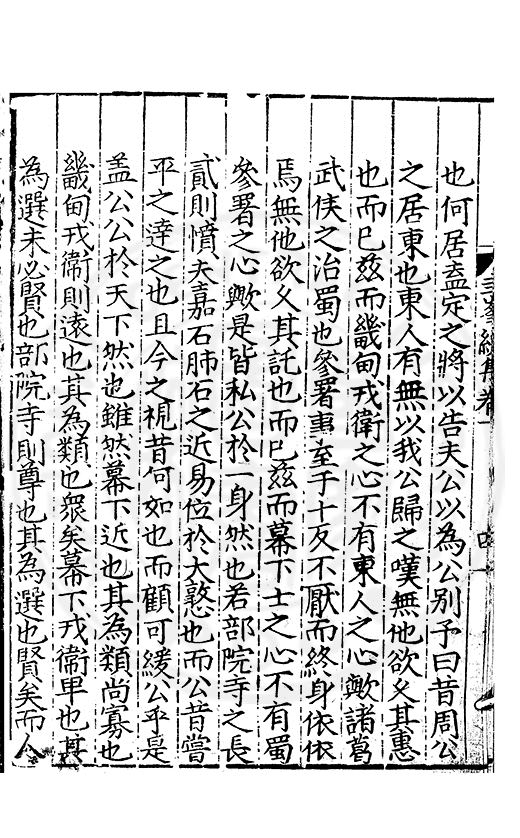 也何居盍定之將以告夫公以為公别予曰昔周公
之居東也東人有無以我公歸之嘆無他欲久其惠
也而已兹而畿甸戎衛之心不有東人之心歟諸葛
武侯之治蜀也參署事至于十反不厭而終身依依
焉無他欲久其託也而已兹而幕下士之心不有蜀
參署之心歟是皆私公於一身然也若部院寺之長
貳則憤夫嘉石肺石之近易位於大憝也而公昔嘗
平之達之也且今之視昔何如也而顧可緩公乎是
盖公公於天下然也雖然幕下近也其為類尚寡也
畿甸戎衛則遠也其為類也衆矣幕下戎衛卑也其
為選未必賢也部院寺則尊也其為選也賢矣而人